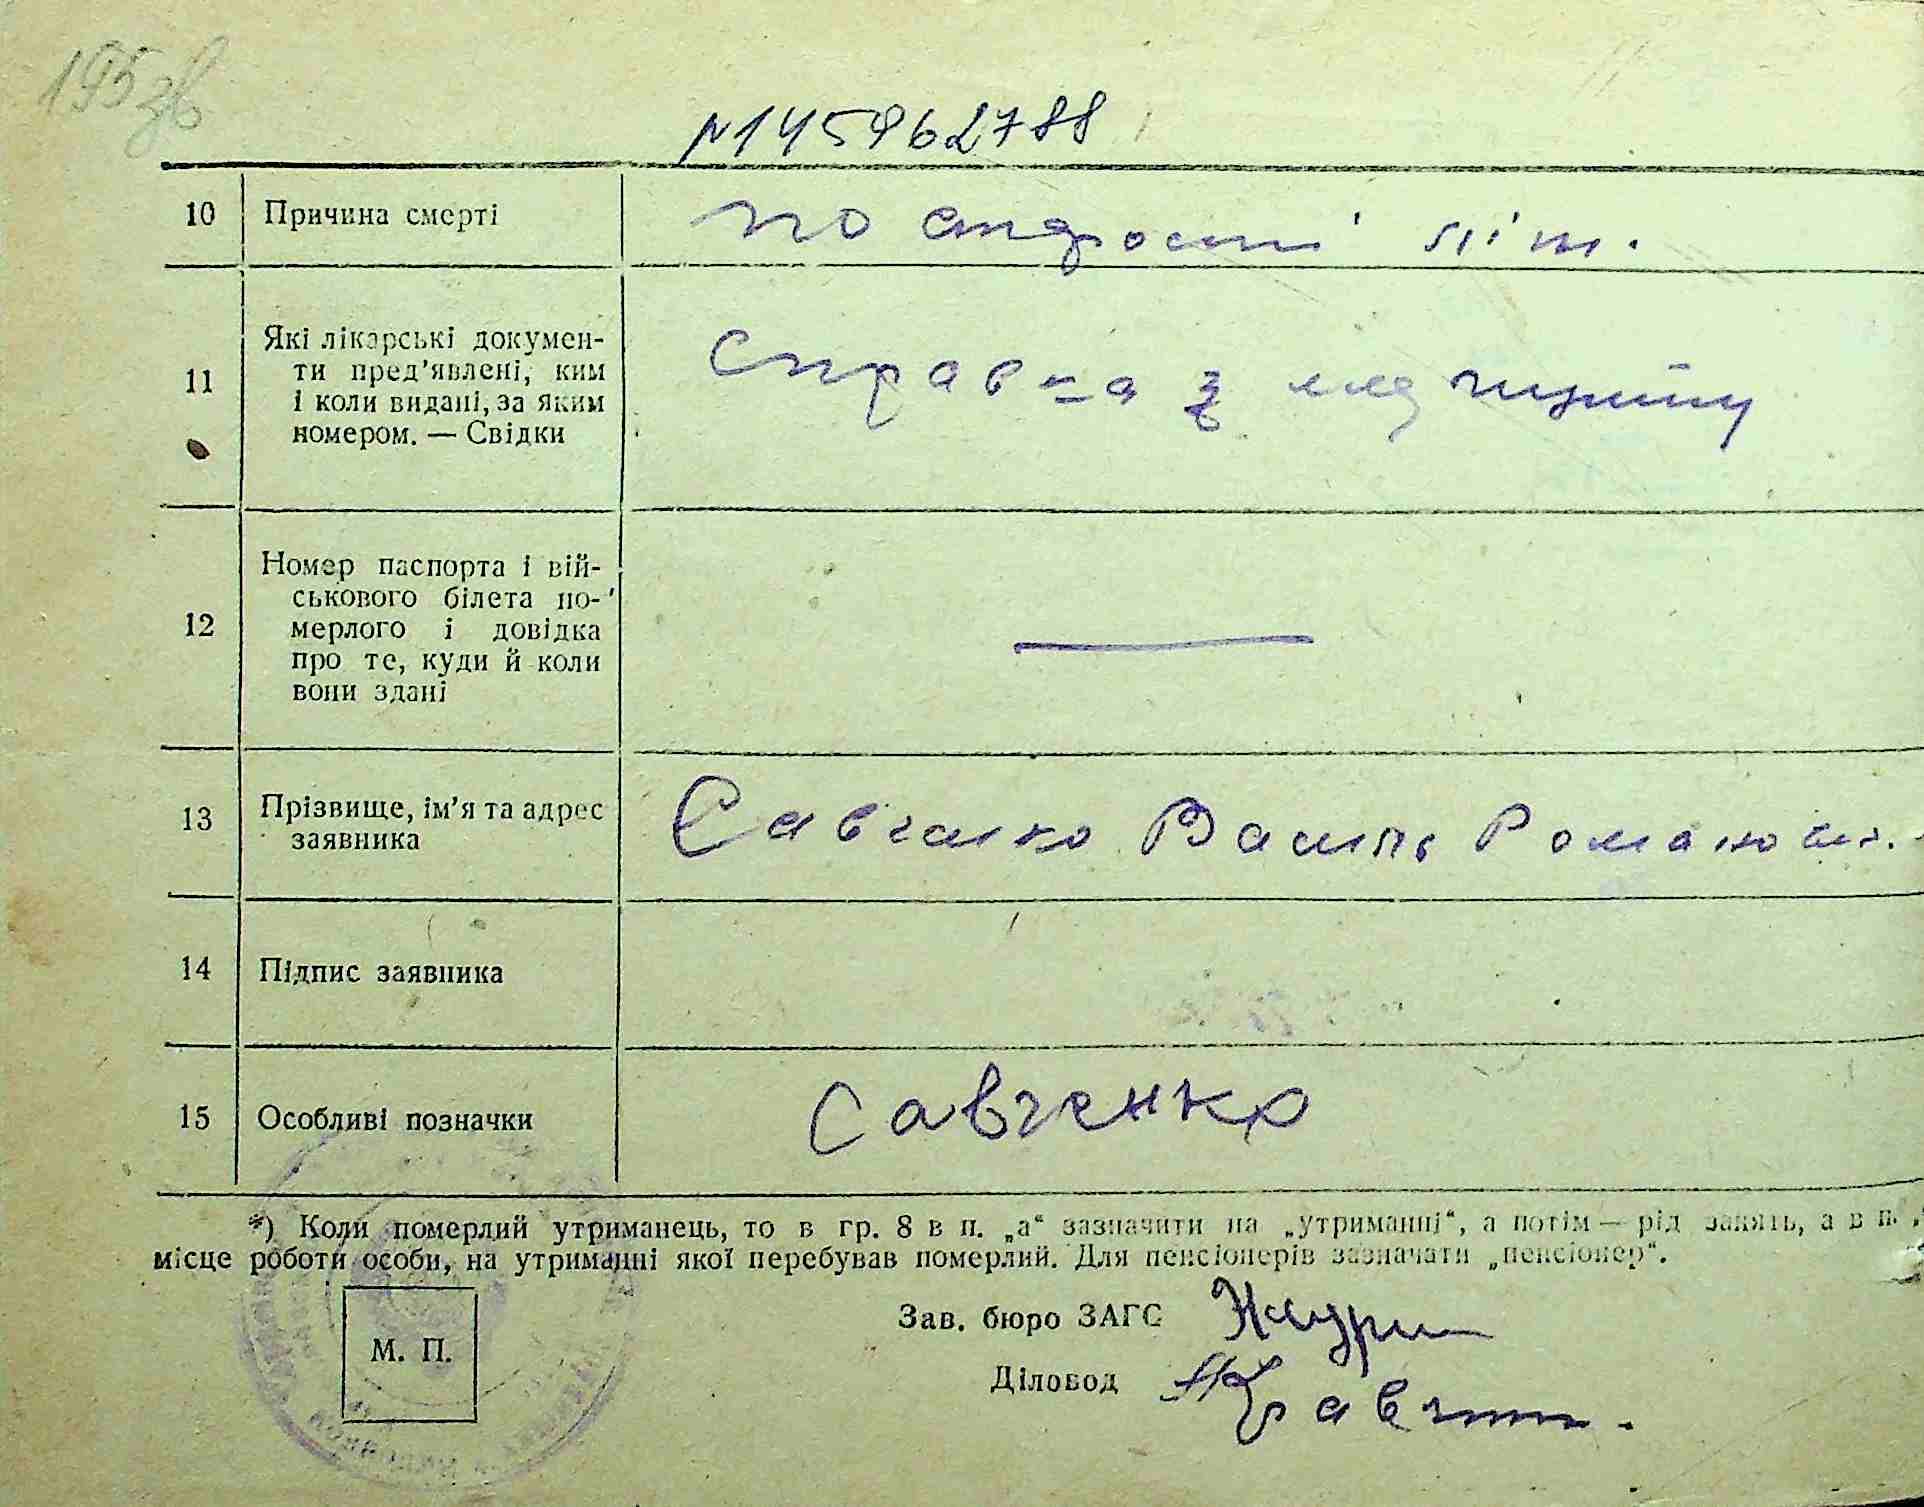 195 зв
№145962788
10 Причина смерті по старості літ.
11 Які лікарські докумен-
ти пред'явлені, ким
і коли видані, за яким
номером. — Свідки
Справка з
12 Номер паспорта і вій-
ськового білета по-
мерлого і довідка
про те, куди й коли
вони здані
—
13 Прізвище, ім'я та адрес
заявника
Савченко Василь
14 Підпис заявника
15 Особливі позначки Савченко
*) Коли померлий утриманець, то в гр. 8 в п. „а“ зазначити на „утриманні“, а потім — рід занять, а в п.
місце роботи особи, на утриманні якої перебував померлий. Для пенсіонерів зазначати „пенсіонер“.
Зав. бюро ЗАГС
М. П.
Діловод